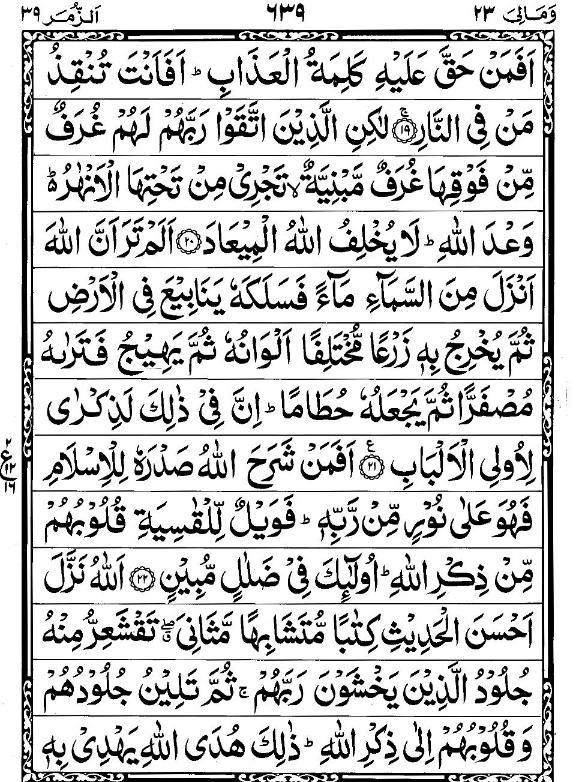 اَلزُّمَر ٣٩ ٦٣٩ وَمَالِیَ ٢٣
اَفَمَنْ حَقَّ عَلَیْهِ كَلِمَةُ الْعَذَابِ ؕ اَفَاَنْتَ تُنْقِذُ
مَنْ فِی النَّارِ ۚ ﴿١٩﴾ لٰكِنِ الَّذِیْنَ اتَّقَوْا رَبَّهُمْ لَهُمْ غُرَفٌ
مِّنْ فَوْقِهَا غُرَفٌ مَّبْنِیَّةٌ ۙ تَجْرِیْ مِنْ تَحْتِهَا الْاَنْهٰرُ ؕ۬
وَعْدَ اللّٰهِ ؕ لَا یُخْلِفُ اللّٰهُ الْمِیْعَادَ ﴿٢٠﴾ اَلَمْ تَرَ اَنَّ اللّٰهَ
اَنْزَلَ مِنَ السَّمَآءِ مَآءً فَسَلَكَهٗ یَنَابِیْعَ فِی الْاَرْضِ
ثُمَّ یُخْرِجُ بِهٖ زَرْعًا مُّخْتَلِفًا اَلْوَانُهٗ ثُمَّ یَهِیْجُ فَتَرٰىهُ
مُصْفَرًّا ثُمَّ یَجْعَلُهٗ حُطَامًا ؕ اِنَّ فِیْ ذٰلِكَ لَذِكْرٰی
لِاُولِی الْاَلْبَابِ ﴿٢١﴾ اَفَمَنْ شَرَحَ اللّٰهُ صَدْرَهٗ لِلْاِسْلَامِ
٢ ع ١٢ ١٦
فَهُوَ عَلٰی نُوْرٍ مِّنْ رَّبِّهٖ ؕ فَوَیْلٌ لِّلْقٰسِیَةِ قُلُوْبُهُمْ
مِّنْ ذِكْرِ اللّٰهِ ؕ اُولٰٓئِكَ فِیْ ضَلٰلٍ مُّبِیْنٍ ﴿٢٢﴾ اَللّٰهُ نَزَّلَ
اَحْسَنَ الْحَدِیْثِ كِتٰبًا مُّتَشَابِهًا مَّثَانِیَ ۖۗ تَقْشَعِرُّ مِنْهُ
جُلُوْدُ الَّذِیْنَ یَخْشَوْنَ رَبَّهُمْ ۚ ثُمَّ تَلِیْنُ جُلُوْدُهُمْ
وَقُلُوْبُهُمْ اِلٰی ذِكْرِ اللّٰهِ ؕ ذٰلِكَ هُدَی اللّٰهِ یَهْدِیْ بِهٖ